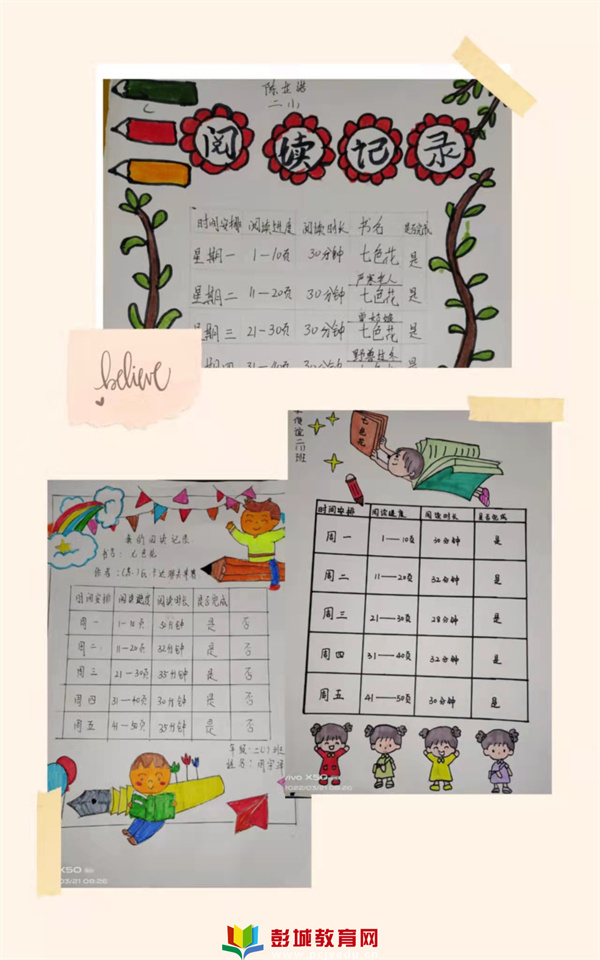 二(1)
阅读记录
时间安排 阅读进度 阅读时长 书名 是否完成
星期一 1—10页 30分钟 七色花 是
星期二 11—20页 30分钟 七色花 是
星期三 21—30页 30分钟 七色花 是
believe
七色花
二(1)班
时间安排 阅读进度 阅读时长 是否完成
周一 1—10页 30分钟 是
周二 11—20页 32分钟 是
周三 21—30页 28分钟 是
周四 31—40页 32分钟 是
周五 41—50页 30分钟 是
vivo X50
2022/03/21 08:26
我的阅读记录
书名：七色花
时间安排 阅读进度 阅读时长 是否完成
周一 1—10页 是 否
周二 11—20页 32分钟 是 否
周三 21—30页 35分钟 是 否
周四 31—40页 30分钟 是 否
周五 41—50页 35分钟 是 否
年级：二(1)班
姓名：周宇泽
X50
03/21 08:26
彭城教育网